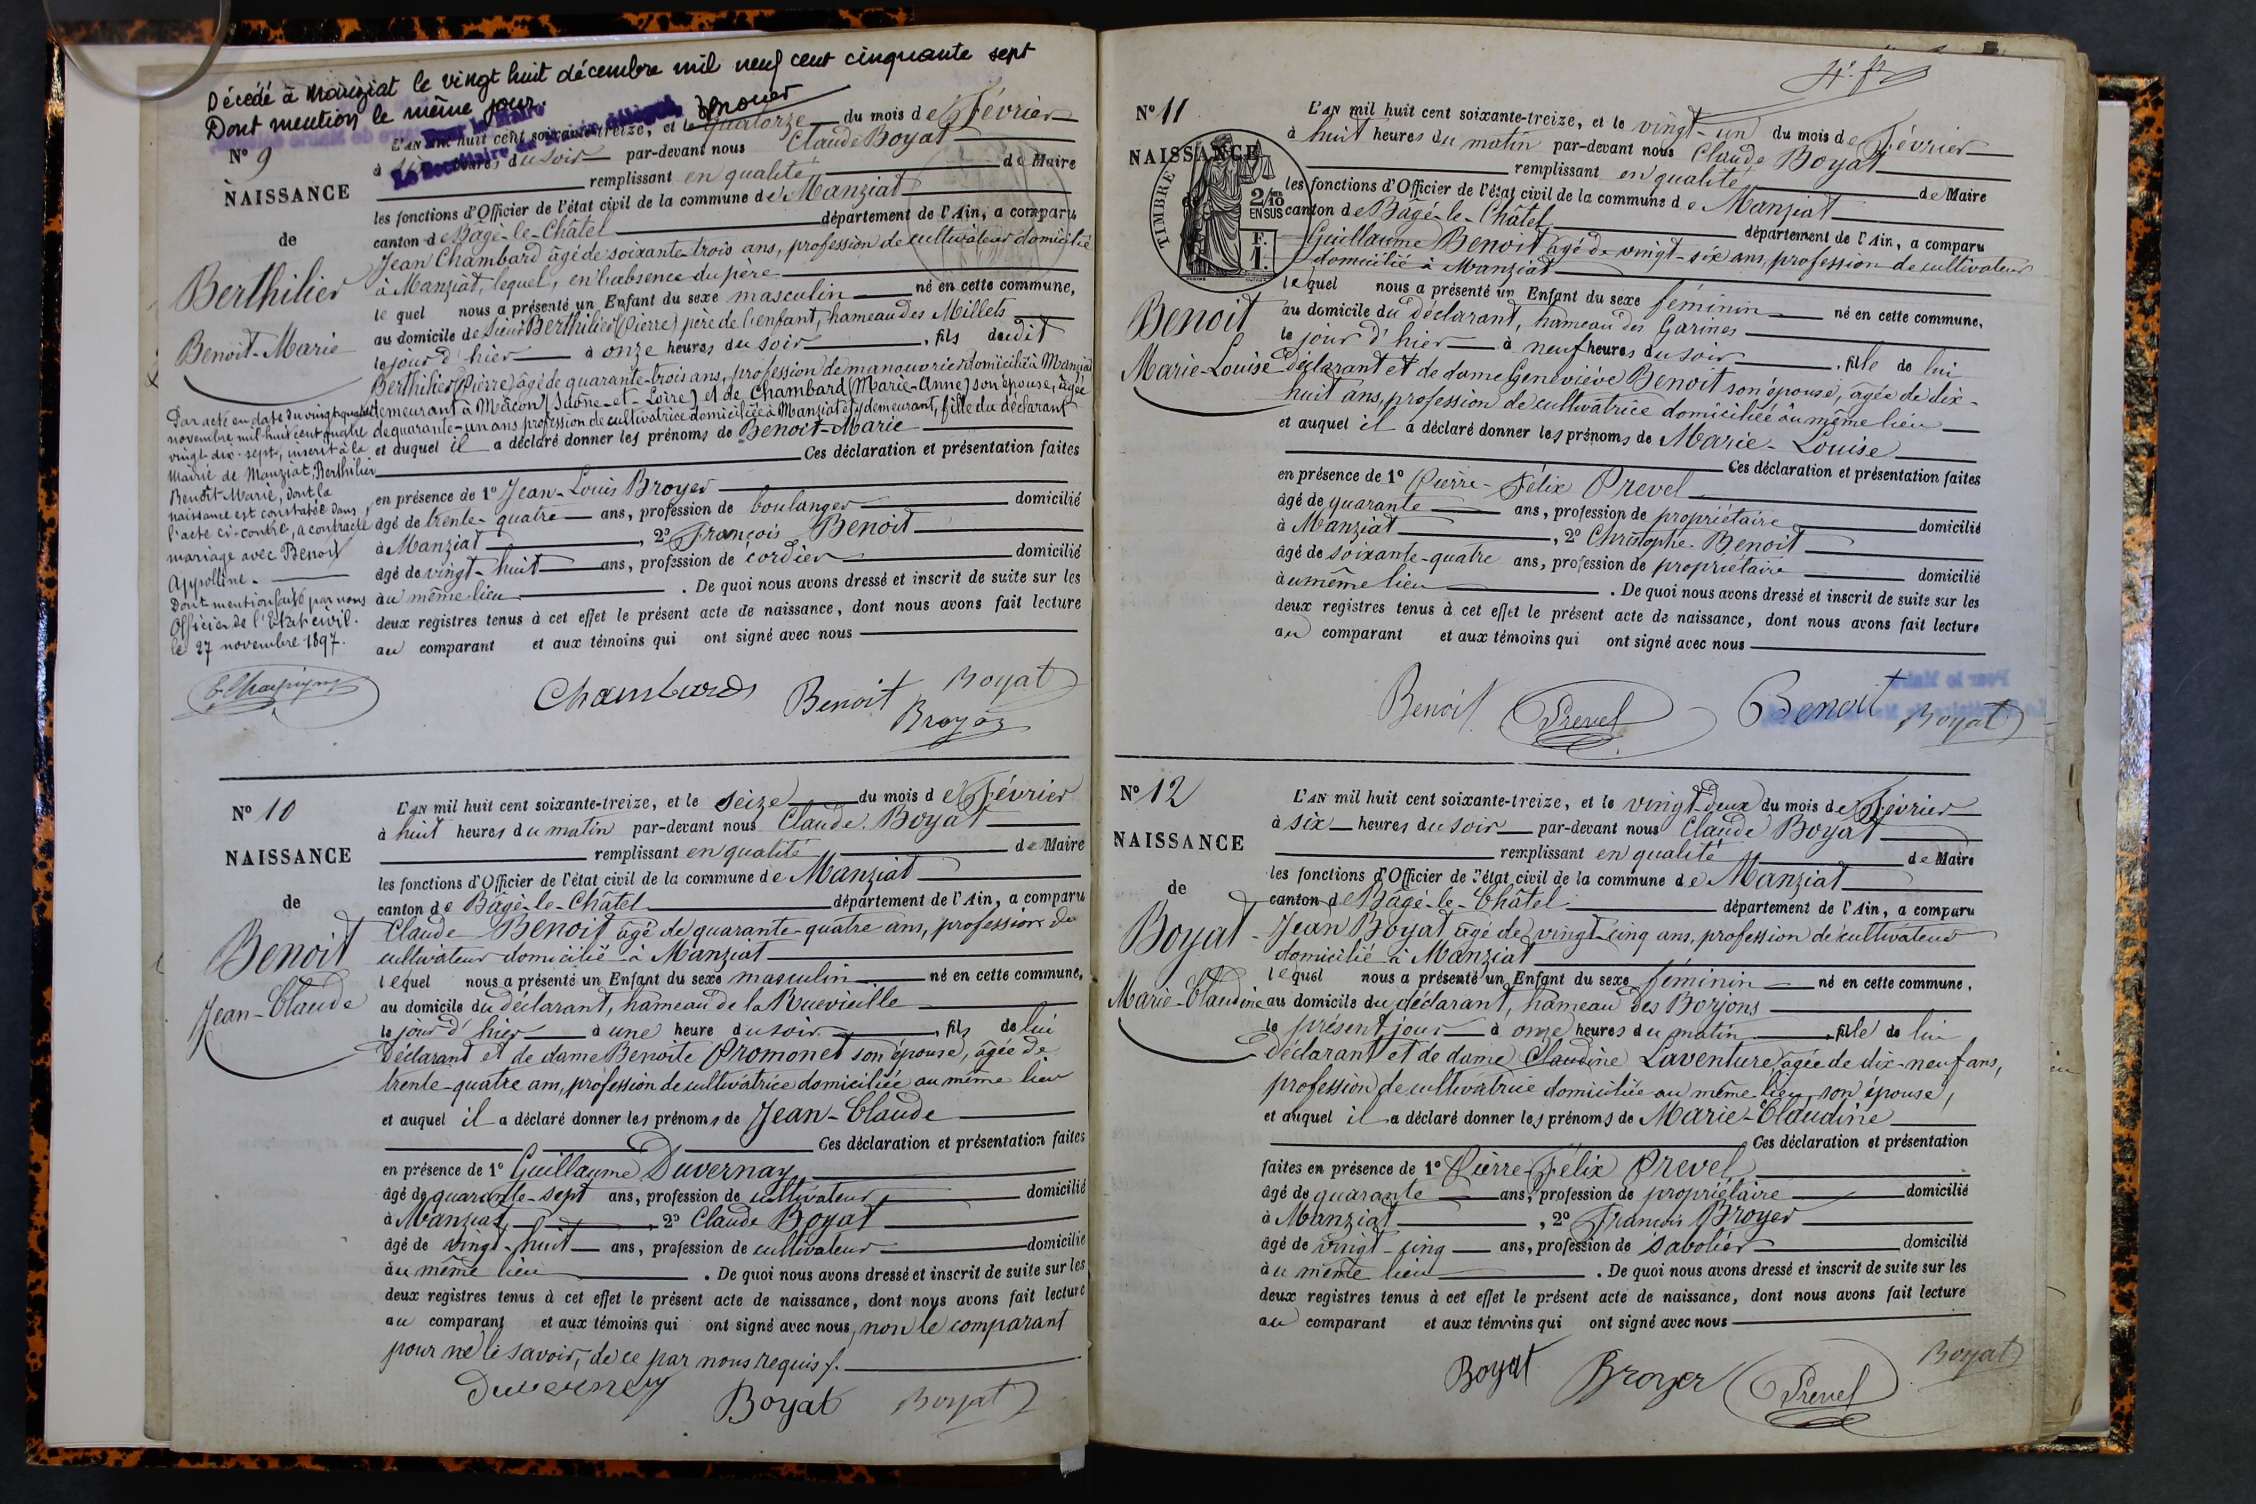 Décédé à Manziat le vingt huit décembre mil neuf cent cinquante sept
Dont mention le même jour.
Pour le Maire
Le Secrétaire de Mairie délégué,
N° 9
NAISSANCE
de
Berthilier
Benoit-Marie
L'AN mil huit cent soixante-treize, et le quatorze du mois de Février
à six heures du soir par-devant nous Claude Boyat
remplissant en qualité de Maire
les fonctions d'Officier de l'état civil de la commune de Manziat
canton de Bâgé-le-Châtel département de l'Ain, a comparu
Jean Chambard âgé de soixante-trois ans, profession de cultivateur domicilié
à Manziat, lequel, en l'absence du père
lequel nous a présenté un Enfant du sexe masculin né en cette commune,
au domicile de sieur Berthilier (Pierre) père de l'enfant, hameau des Millets
le jour d'hier à onze heures du soir, fils dudit
Berthilier (Pierre) âgé de quarante-trois ans, profession de manouvrier domicilié à Manziat
demeurant à Mâcon (Saône-et-Loire) et de Chambard (Marie-Anne) son épouse, âgée
de quarante-un ans profession de cultivatrice domiciliée à Manziat et y demeurant, fille du déclarant
et auquel il a déclaré donner les prénoms de Benoit-Marie
Ces déclaration et présentation faites
en présence de 1° Jean-Louis Broyer
âgé de trente-quatre ans, profession de boulanger domicilié
à Manziat, 2° François Benoit
âgé de vingt-huit ans, profession de cordier domicilié
au même lieu. De quoi nous avons dressé et inscrit de suite sur les
deux registres tenus à cet effet le présent acte de naissance, dont nous avons fait lecture
au comparant et aux témoins qui ont signé avec nous
Par acte en date du vingt quatre
novembre mil huit cent quatre
vingt-dix-sept, inscrit à la
Mairie de Manziat, Berthilier
Benoit-Marie, dont la
naissance est constatée dans
l'acte ci-contre, a contracté
mariage avec Benoit
Appolline.
Dont mention faite par nous
Officier de l'Etat civil.
le 27 novembre 1897.
Chambard Benoit Boyat
Broyer
N° 10
NAISSANCE
de
Benoit
Jean-Claude
L'AN mil huit cent soixante-treize, et le seize du mois de Février
à huit heures du matin par-devant nous Claude Boyat
remplissant en qualité de Maire
les fonctions d'Officier de l'état civil de la commune de Manziat
canton de Bâgé-le-Châtel département de l'Ain, a comparu
Claude Benoit âgé de quarante-quatre ans, profession de
cultivateur domicilié à Manziat
lequel nous a présenté un Enfant du sexe masculin né en cette commune,
au domicile du déclarant, hameau de la Ruevieille
le jour d'hier à une heure du soir, fils de lui
Déclarant et de dame Benoite Promonet son épouse, âgée de
trente-quatre ans, profession de cultivatrice domiciliée au même lieu
et auquel il a déclaré donner les prénoms de Jean-Claude
Ces déclaration et présentation faites
en présence de 1° Guillaume Duvernay
âgé de quarante-sept ans, profession de cultivateur domicilié
à Manziat, 2° Claude Boyat
âgé de vingt-huit ans, profession de cultivateur domicilié
au même lieu. De quoi nous avons dressé et inscrit de suite sur les
deux registres tenus à cet effet le présent acte de naissance, dont nous avons fait lecture
au comparant et aux témoins qui ont signé avec nous, non le comparant
pour ne le savoir, de ce par nous requis/.
Duvernay Boyat Boyat
N° 11
NAISSANCE
TIMBRE
2/10
EN SUS
F.
1.
Benoit
Marie-Louise
L'AN mil huit cent soixante-treize, et le vingt-un du mois de Février
à huit heures du matin par-devant nous Claude Boyat
remplissant en qualité de Maire
les fonctions d'Officier de l'état civil de la commune de Manziat
canton de Bâgé-le-Châtel département de l'Ain, a comparu
Guillaume Benoit âgé de vingt-six ans, profession de cultivateur
domicilié à Manziat
lequel nous a présenté un Enfant du sexe féminin né en cette commune,
au domicile du déclarant, hameau des Garines
le jour d'hier à neuf heures du soir, fille de lui
Déclarant et de dame Geneviève Benoit son épouse, âgée de dix-
huit ans, profession de cultivatrice domiciliée au même lieu
et auquel il a déclaré donner les prénoms de Marie-Louise
Ces déclaration et présentation faites
en présence de 1° Pierre-Félix Prevel
âgé de quarante ans, profession de propriétaire domicilié
à Manziat, 2° Christophe Benoit
âgé de soixante-quatre ans, profession de propriétaire domicilié
au même lieu. De quoi nous avons dressé et inscrit de suite sur les
deux registres tenus à cet effet le présent acte de naissance, dont nous avons fait lecture
au comparant et aux témoins qui ont signé avec nous
Benoit Prevel Benoit Boyat
N° 12
NAISSANCE
de
Boyat
Marie-Claudine
L'AN mil huit cent soixante-treize, et le vingt-deux du mois de Février
à six heures du soir par-devant nous Claude Boyat
remplissant en qualité de Maire
les fonctions d'Officier de l'état civil de la commune de Manziat
canton de Bâgé-le-Châtel département de l'Ain, a comparu
Jean Boyat âgé de vingt-cinq ans, profession de cultivateur
domicilié à Manziat
lequel nous a présenté un Enfant du sexe féminin né en cette commune,
au domicile du déclarant, hameau des Borjons
le présent jour à onze heures du matin, fille de lui
Déclarant et de dame Claudine Laventure âgée de dix-neuf ans,
profession de cultivatrice domiciliée au même lieu, son épouse,
et auquel il a déclaré donner les prénoms de Marie-Claudine
Ces déclaration et présentation
faites en présence de 1° Pierre Félix Prevel
âgé de quarante ans, profession de propriétaire domicilié
à Manziat, 2° François Broyer
âgé de vingt-cinq ans, profession de sabotier domicilié
au même lieu. De quoi nous avons dressé et inscrit de suite sur les
deux registres tenus à cet effet le présent acte de naissance, dont nous avons fait lecture
au comparant et aux témoins qui ont signé avec nous
Boyat Broyer Prevel Boyat